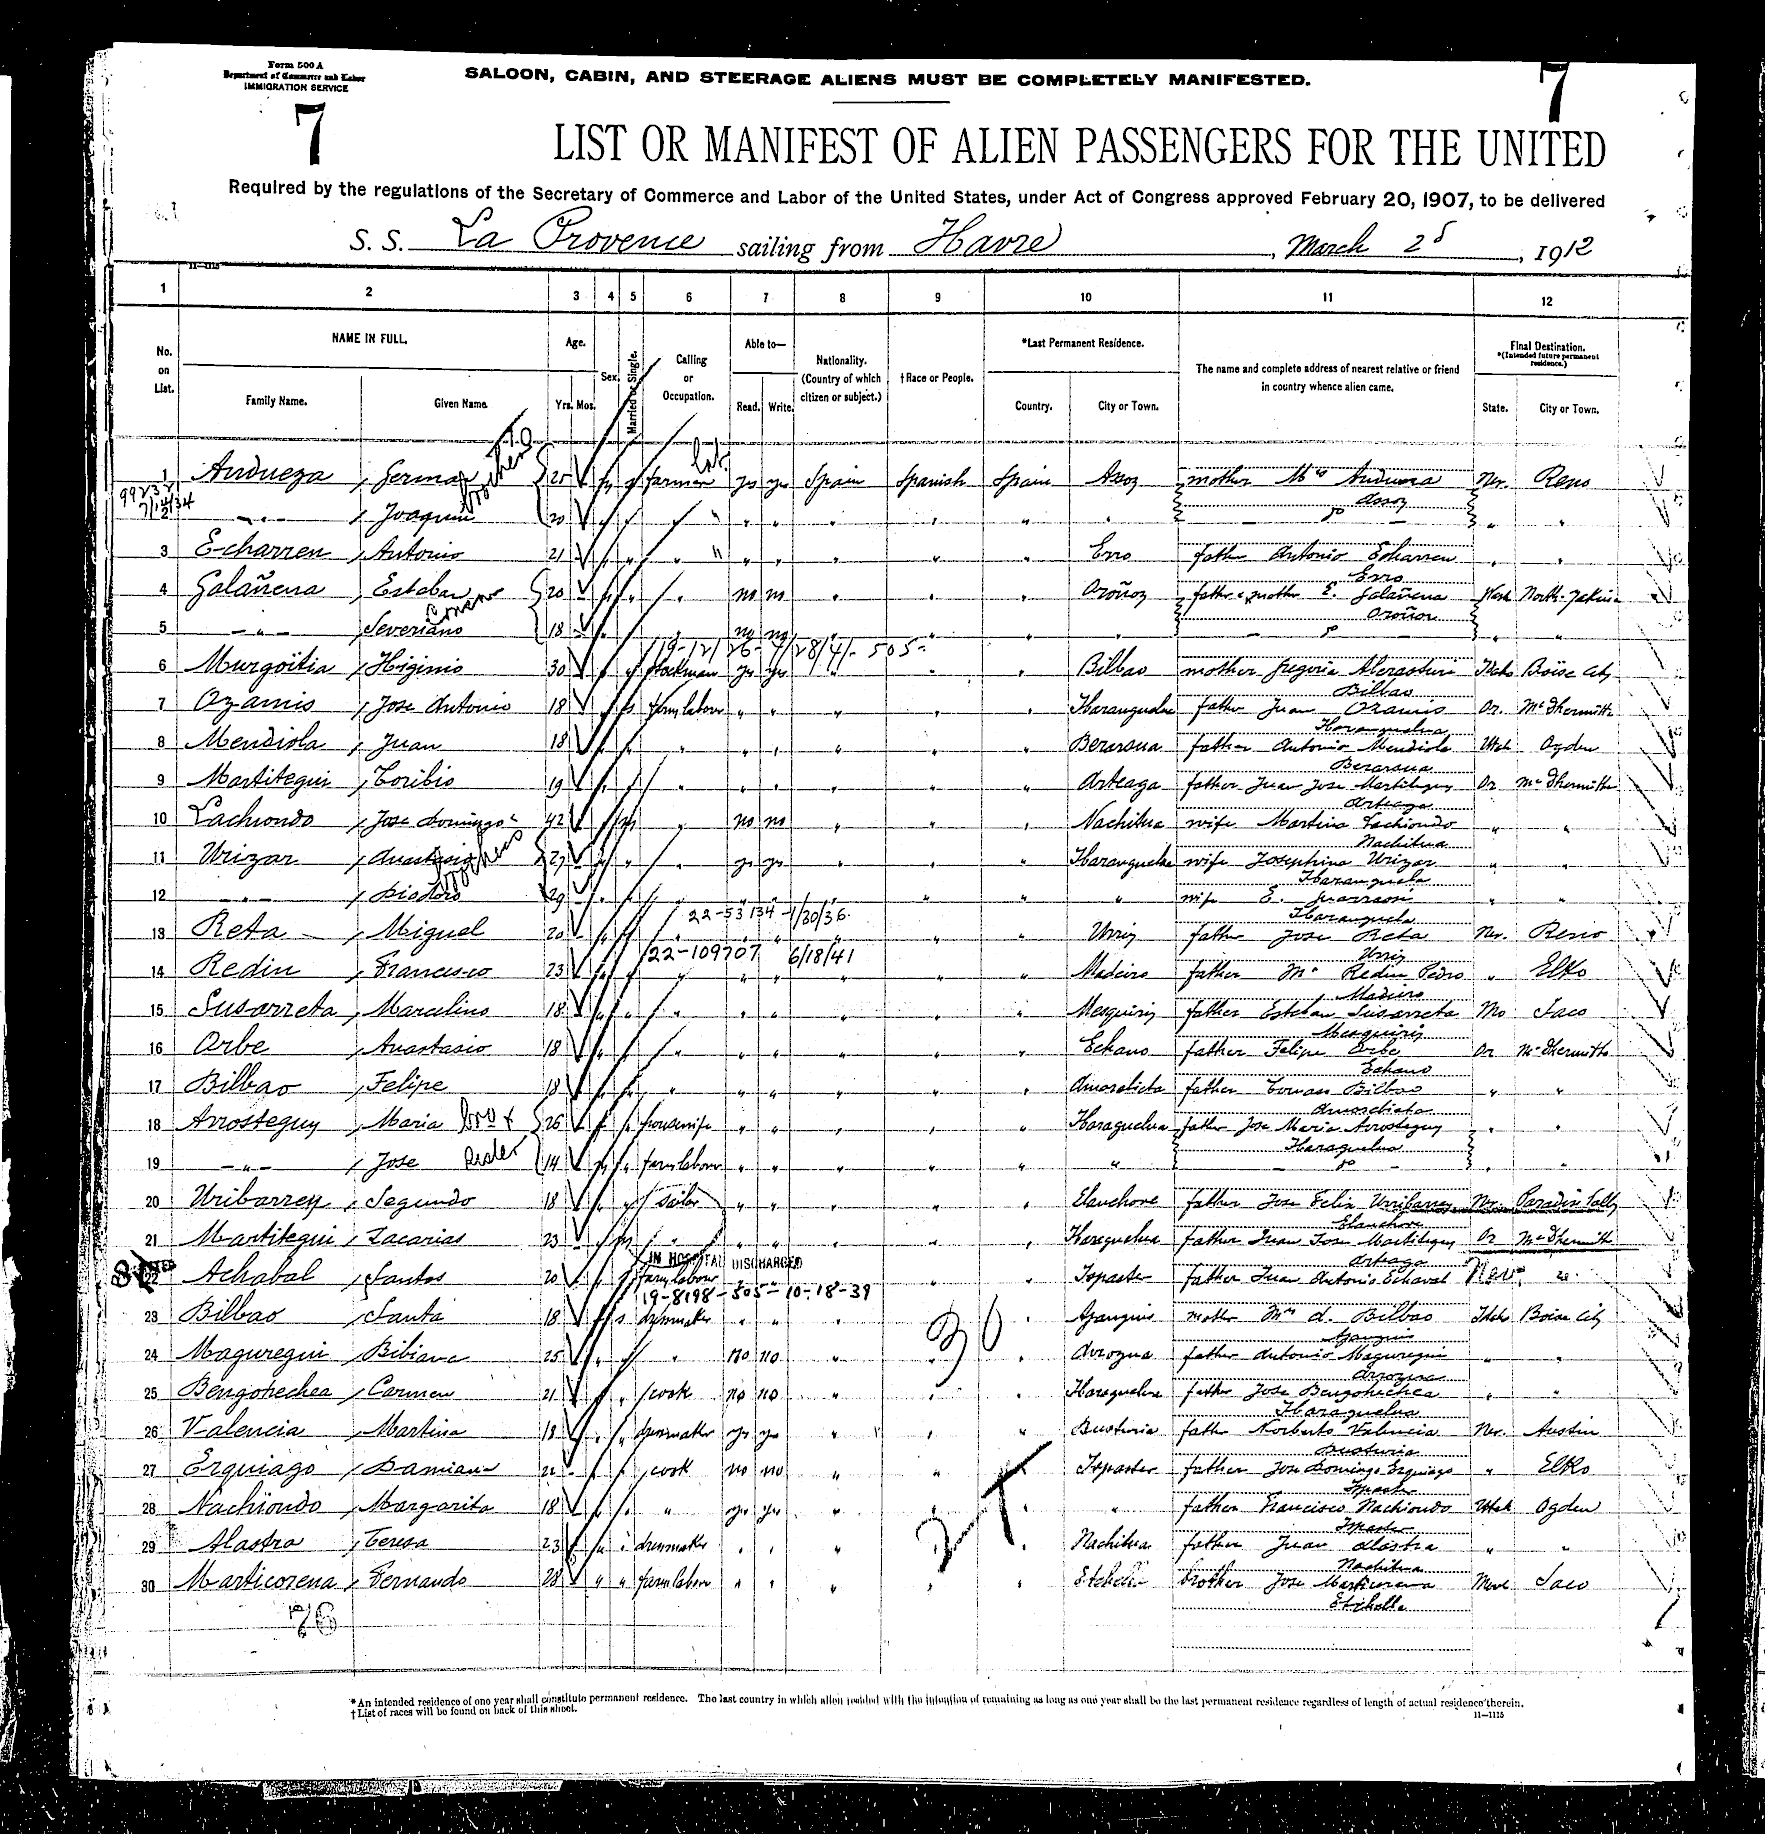 Form 500 A
Department of Commerce and Labor
IMMIGRATION SERVICE
SALOON, CABIN, AND STEERAGE ALIENS MUST BE COMPLETELY MANIFESTED.
7
7
LIST OR MANIFEST OF ALIEN PASSENGERS FOR THE UNITED
Required by the regulations of the Secretary of Commerce and Labor of the United States, under Act of Congress approved February 20, 1907, to be delivered
S. S. La Provence sailing from Havre, March 2d, 1912
1 2 3 4 5 6 7 8 9 10 11 12
No. on List.
NAME IN FULL.
Family Name. Given Name.
Age.
Yrs. Mos.
Sex.
Married or Single.
Calling or Occupation.
Able to—
Read. Write.
Nationality. (Country of which citizen or subject.)
†Race or People.
*Last Permanent Residence.
Country. City or Town.
The name and complete address of nearest relative or friend in country whence alien came.
Final Destination.
*(Intended future permanent residence.)
State. City or Town.
1 Andueza German 25 farmer yes yes Spain Spanish Spain Assoz mother Andueza Nev. Reno
Assoz
" Joaquin 20 " " " " " " do " "
3 Echarren Antonio 21 " " " " " " Erro father Antonio Echarren " "
Erro
4 Galañena Esteban 20 " no no " " " Oroñoz father & mother E. Galañena Wash North-Yakima
Oroñoz
5 " Severiano 18 " no no " " " " do " "
19-12126-7/28/41-505-
6 Murgoitia Higinio 30 stockman yes yes " " " Bilbao mother Gregoria Idaho Boise City
Bilbao
7 Ozamis Jose Antonio 18 farm labour " " " " " Ibaranguelua father Juan Ozamis Or. McDhermitt
8 Mendiola Juan 18 " " " " " " father Antonio Mendiola Utah Ogden
9 Martitegui Toribio 19 " " " " " " Arteaga father Juan Jose Martitegui Or McDhermitt
Arteaga
10 Lachiondo Jose Domingo 42 " no no " " " Nachitua wife Martina Lachiondo " "
Nachitua
11 Urizar Anastasio 27 " yes yes " " " wife Josephina Urizar " "
12 " 29 " " " " " " " wife E. " "
22-53134-1/30/36
13 Reta Miguel 20 " " " " " " Urriz father Jose Reta Nev. Reno
Urriz
22-109707 6/18/41
14 Redin Francisco 23 " " " " " Madeiro father Redin Pedro " Elko
15 Susarreta Marcelino 18 " " " " " " Mesquiriz father Esteban Susarreta Mo Saco
Mesquiriz
16 Arbe Anastasio 18 " " " " " " Echano father Felipe Arbe Or McDhermitt
Echano
17 Bilbao Felipe 18 " " " " " " Amorebieta father Bilbao " "
Amorebieta
18 Arrosteguy Maria bro & 26 housewife " " " " " Ibaraguelua father Jose Maria Arrosteguy " "
Ibaraguelua
19 " Jose sister 14 farm labour " " " " " " do " "
20 Uribarrey Segundo 18 sailor " " " " " Elanchove father Jose Felix Urribarrey Nev.
Elanchove
21 Martitegui Zacarias 23 " " " " " " Ibaraguelua father Juan Jose Martitegui Or McDhermitt
Arteaga
IN HOSPITAL DISCHARGED
22 Achabal Santos 20 farm labour " " " " " Ispaster father Juan Antonio Echaval Nev
19-8198-505-10-18-39
23 Bilbao Santa 18 s dressmaker " " " " " mother Bilbao Idaho Boise City
24 Maguregui Bibiana 25 " no no " " " father Antonio Maguregui " "
25 Bengohechea Carmen 21 cook no no " " " Ibaraguelua father Jose Bengohechea " "
Ibaraguelua
26 Valencia Martina 18 dressmaker yes yes " " " Busturia father Norberto Valencia Nev. Austin
Busturia
27 Erquiago Damiana cook no no " " " Ispaster father Jose Domingo Erquiago " Elko
Ispaster
28 Nachiondo Margarita 18 " yes yes " " " " father Francisco Nachiondo Utah Ogden
Ispaster
29 Alastra Teresa 23 dressmaker " " " " " Nachitua father Juan Alastra " "
Nachitua
30 Marticorena Fernando 28 " " farm labour " " " " " brother Jose Marticorena Saco
*An intended residence of one year shall constitute permanent residence. The last country in which alien resided with the intention of remaining as long as one year shall be the last permanent residence regardless of length of actual residence therein.
†List of races will be found on back of this sheet.
11—1115